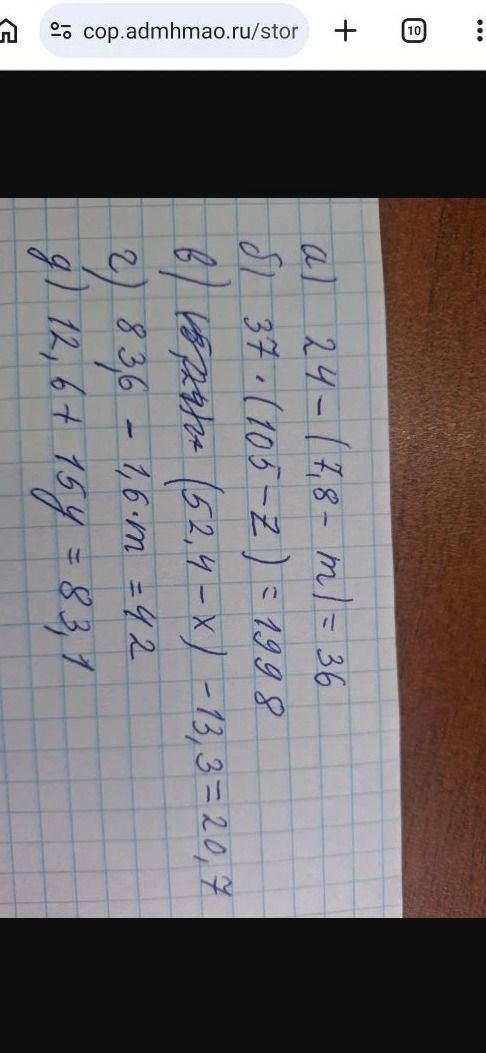 cop.admhmao.ru/stor
10
а) 24 - (7,8 - m) = 36
б) 37 · (105 - z) = 1998
в) (52,4 - x) - 13,3 = 20,7
г) 83,6 - 1,6·m = 42
д) 12,6 + 15y = 83,1